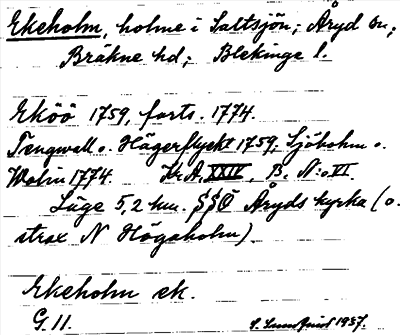 Ekeholm, holme i Saltsjön; Åryd sn;
Bräkne hd; Blekinge l.
Eköö 1759, forts. 1774.
Tengwall o. Hägerflyckt 1759. Sjöholm o.
Wolin 1774. Kr.A. XXIV, B, N:o VI.
Läge 5,2 km. SSO Åryds kyrka (o.
strax N Högaholm).
Ekeholm ek.
G. 11.
S. Lundquist 1937.